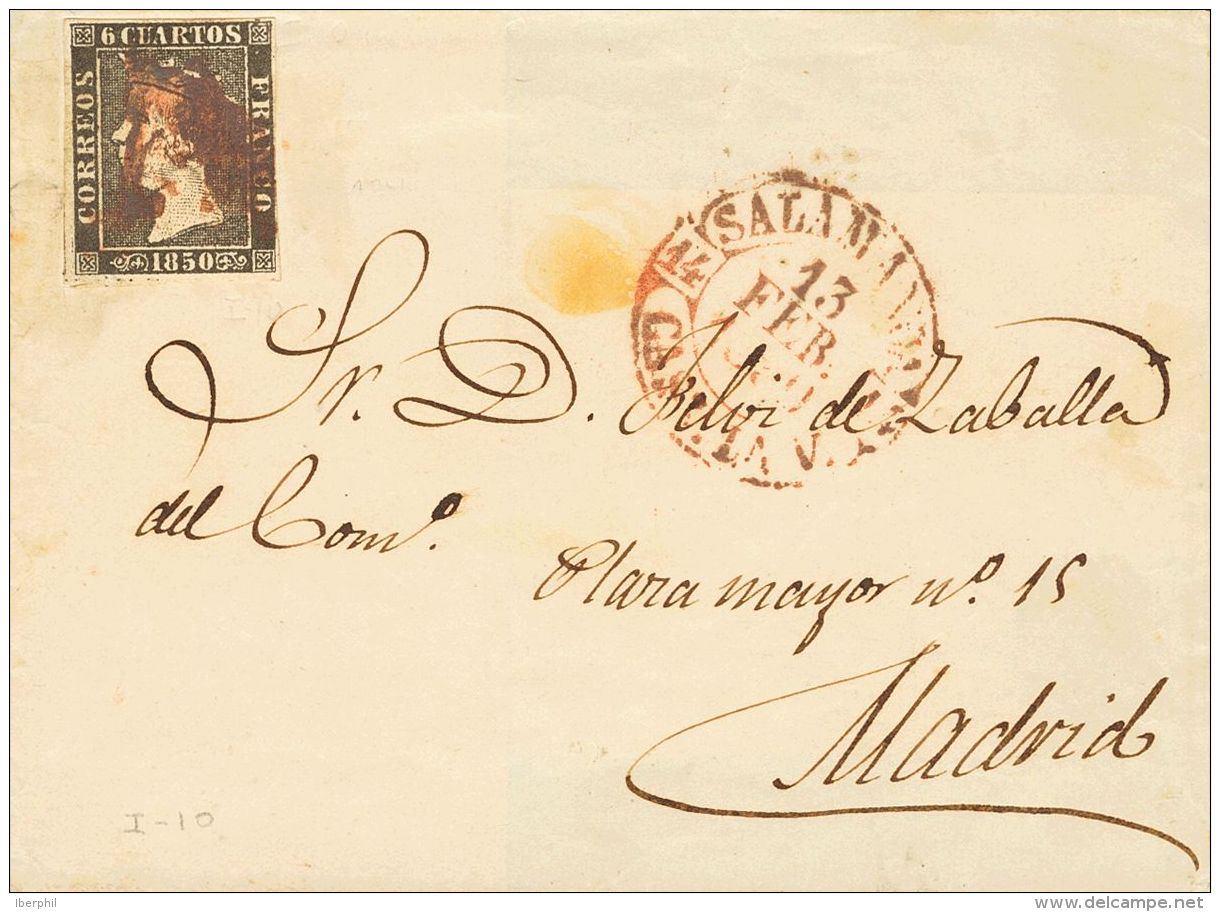 6 CUARTOS
CORREOS
FRANCO
1850
SALAMANCA
14
13
FEB.
CAS
LA V.
Sr. D. Felvi de Zaballa
del Comº.
Plaza mayor nº. 15
Madrid
I-10
Iberphil
delcampe.net